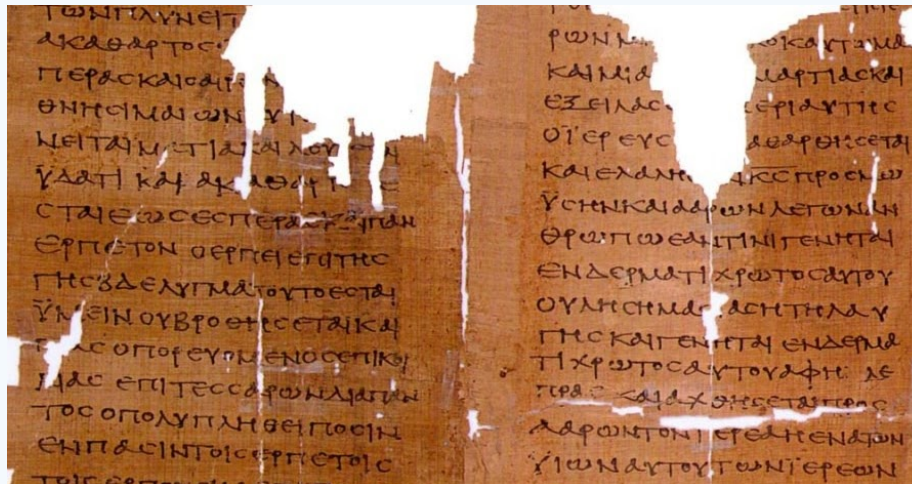 ΤΩΝΠΛΥΝΕΙΤ
ΑΚΑΘΑΡΤΟϹ
ΠΕΡΑϹΚΑΙΟΑΙΡ
ΘΝΗϹΙΜΑΙΩΝ
ΝΕΙΤΑΙΜΑΤΙΑΚΑΙΛΟΥ
ΫΔΑΤΙ ΚΑΙ ΑΚΑΘΑΡΤ Ε
ϹΤΑΙΕΩϹΕϹΠΕΡΑϹΚΑΙΠΑΝ
ΕΡΠΕΤΟΝ ΟΕΡΠΕΙΕΠΙΤΗϹ
ΓΗϹΒΔΕΛΥΓΜΑΤΟΥΤΟΕϹΤΑΙ
ΫΜΕΙΝΟΥΒΡΟΘΗϹΕΤΑΙΚΑΙ
ΑϹ ΟΠΟΡΕΥΟΜΕΝΟϹΕΠΙΚΟΙ
ΛΙΑϹ ΕΠΙΤΕϹϹΑΡΩΝΔΙΑΠΑΝ
ΤΟϹΟΠΟΛΥΠΛΗΘΕΙΠΟϹΙΝ
ΕΝΠΑϹΙΝΤΟΙϹΕΡΠΕΤΟΙϹ
ΡΩΝ Μ ΩΚΑΥΤΩΜΑ
ΚΑΙΜΙΑ ΜΑΡΤΙΑϹΚΑΙ
ΕΞΕΙΛΑϹ ΕΡΙΑΥΤΗϹ
ΟΪΕΡΕΥϹ ΑΘΑΡΘΗϹΕΤΑΙ
ΚΑΙΕΛΑΛΗϹ ΚϹΠΡΟϹΜΩ
ΫϹΗΝΚΑΙΑΑΡΩΝΛΕΓΩΝΑΝ
ΘΡΩΠΩΕΑΝΤΙΝΙΓΕΝΗΤΑΙ
ΕΝΔΕΡΜΑΤΙ ΧΡΩΤΟϹΑΥΤΟΥ
ΟΥΛΗϹΗΜΑϹΙΑϹΗΤΗΛΑΥ
ΓΗϹΚΑΙΓΕΝΗΤΑΙ ΕΝΔΕΡΜΑ
ΤΙΧΡΩΤΟϹΑΥΤΟΥΑΦΗ ΛΕ
ΠΡΑϹ ΚΑΙΑΧΘΗϹΕΤΑΙΠΡΟϹ
ΑΑΡΩΝΤΟΝΪΕΡΕΑΗΕΝΑΤΩΝ
ΫΙΩΝΑΥΤΟΥΤΩΝΪΕΡΕΩΝ